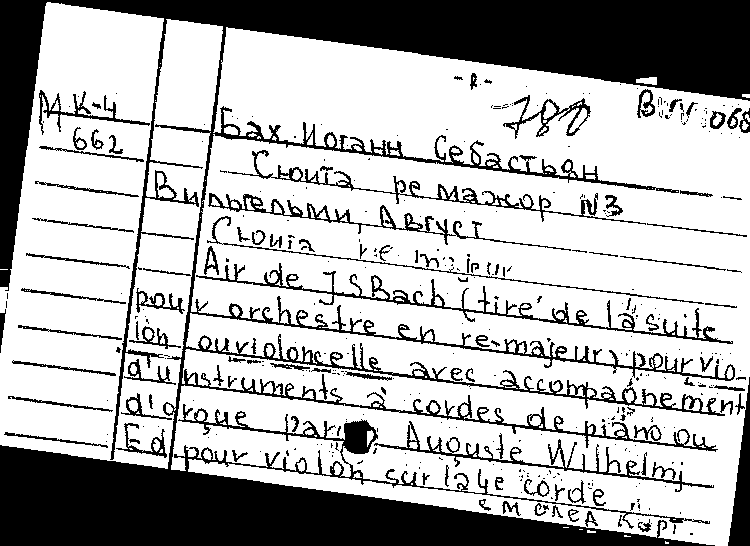 -2-
780 BWV 068
М К-4
662
Бах, Иоганн Себастьян
Сюита ре мажор N3
Вильгельми, Август
Сюита re majeur
Air de J S Bach (tiré de la suite
pour orchestre en re-majeur) pour vio-
lon ou violoncelle avec accompagnement
d'instruments à cordes, de piano ou
d'orgue par Auguste Wilhelmj
Ed pour violon sur la 4e corde
см след карт.